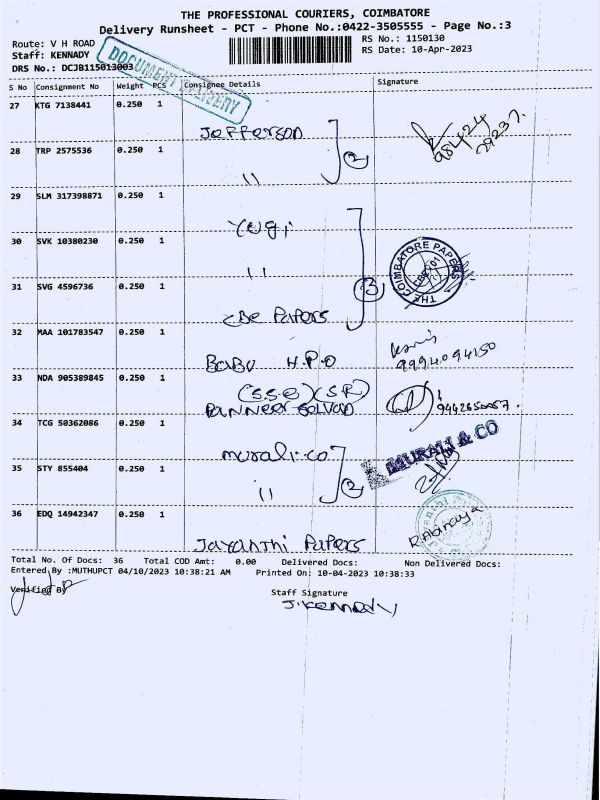 THE PROFESSIONAL COURIERS, COIMBATORE
Delivery Runsheet - PCT - Phone No.:0422-3505555 - Page No.:3
Route: V H ROAD
RS No.: 1150130
Staff: KENNADY
RS Date: 10-Apr-2023
DRS No.: DCJB115013003
DOCUMENT DELIVERY
S No Consignment No Weight PCS Consignee Details Signature
27 KTG 7138441 0.250 1
Jefferson
98424
29237
28 TRP 2575536 0.250 1
"
2
29 SLM 317398871 0.250 1
Yugi
30 SVK 10380230 0.250 1
"
THE COIMBATORE PAPERS
31 SVG 4596736 0.250 1
3
CBE PAPERS
32 MAA 101783547 0.250 1
BABU H.P.O
9994094150
33 NDA 905389845 0.250 1
(S.S.O) (S.R)
PANNEER SELVAM
34 TCG 50362086 0.250 1
murali.co
MURALI & CO
35 STY 855404 0.250 1
"
2
36 EDQ 14942347 0.250 1
Jayanthi Papers
R.Abinaya
Total No. Of Docs: 36 Total COD Amt: 0.00 Delivered Docs: Non Delivered Docs:
Entered By :MUTHUPCT 04/10/2023 10:38:21 AM Printed On: 10-04-2023 10:38:33
Verified By
Staff Signature
J.Kennady